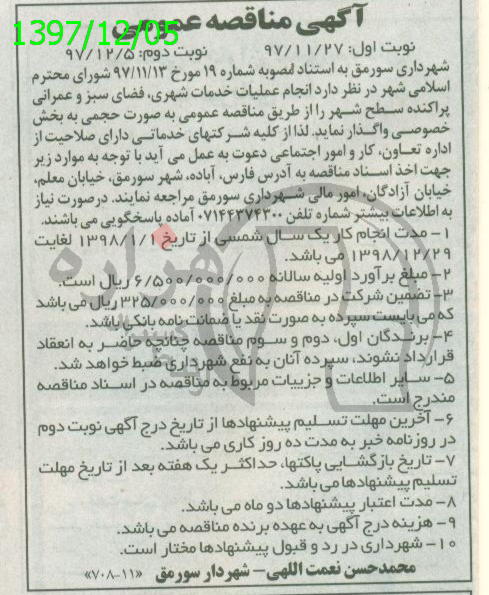 آگهی مناقصه عمومی
1397/12/05
نوبت اول: ۹۷/۱۱/۲۷ نوبت دوم: ۹۷/۱۲/۵
شهرداری سورمق به استناد مصوبه شماره ۱۹ مورخ ۹۷/۱۱/۱۳ شورای محترم
اسلامی شهر در نظر دارد انجام عملیات خدمات شهری، فضای سبز و عمرانی
پراکنده سطح شهر را از طریق مناقصه عمومی به صورت حجمی به بخش
خصوصی واگذار نماید. لذا از کلیه شرکتهای خدماتی دارای صلاحیت از
اداره تعاون، کار و امور اجتماعی دعوت به عمل می آید با توجه به موارد زیر
جهت اخذ اسناد مناقصه به آدرس فارس، آباده، شهر سورمق، خیابان معلم،
خیابان آزادگان، امور مالی شهرداری سورمق مراجعه نمایند. درصورت نیاز
به اطلاعات بیشتر شماره تلفن ۰۷۱۴۴۳۷۴۳۰۰ آماده پاسخگویی می باشند.
۱- مدت انجام کار یک سال شمسی از تاریخ ۱۳۹۸/۱/۱ لغایت
۱۳۹۸/۱۲/۲۹ می باشد.
۲- مبلغ برآورد اولیه سالانه ۶/۵۰۰/۰۰۰/۰۰۰ ریال است.
۳- تضمین شرکت در مناقصه به مبلغ ۳۲۵/۰۰۰/۰۰۰ ریال می باشد
که می بایست سپرده به صورت نقد یا ضمانت نامه بانکی باشد.
۴- برندگان اول، دوم و سوم مناقصه چنانچه حاضر به انعقاد
قرارداد نشوند، سپرده آنان به نفع شهرداری ضبط خواهد شد.
۵- سایر اطلاعات و جزییات مربوط به مناقصه در اسناد مناقصه
مندرج است.
۶- آخرین مهلت تسلیم پیشنهادها از تاریخ درج آگهی نوبت دوم
در روزنامه خبر به مدت ده روز کاری می باشد.
۷- تاریخ بازگشایی پاکتها، حداکثر یک هفته بعد از تاریخ مهلت
تسلیم پیشنهادها می باشد.
۸- مدت اعتبار پیشنهادها دو ماه می باشد.
۹- هزینه درج آگهی به عهده برنده مناقصه می باشد.
۱۰- شهرداری در رد و قبول پیشنهادها مختار است.
محمدحسن نعمت اللهی- شهردار سورمق «۱۱-۷۰۸»
هزاره